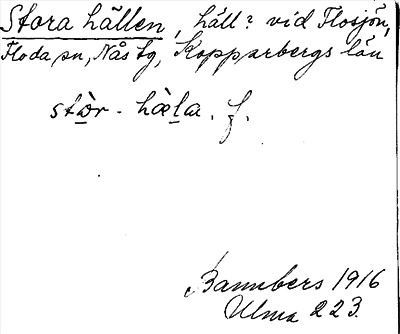 Stora hällen, häll? vid Flosjön,
Floda sn, Nås tg, Kopparbergs län
stòr - hæ̀la. f.
Bannbers 1916
Ulma 223.